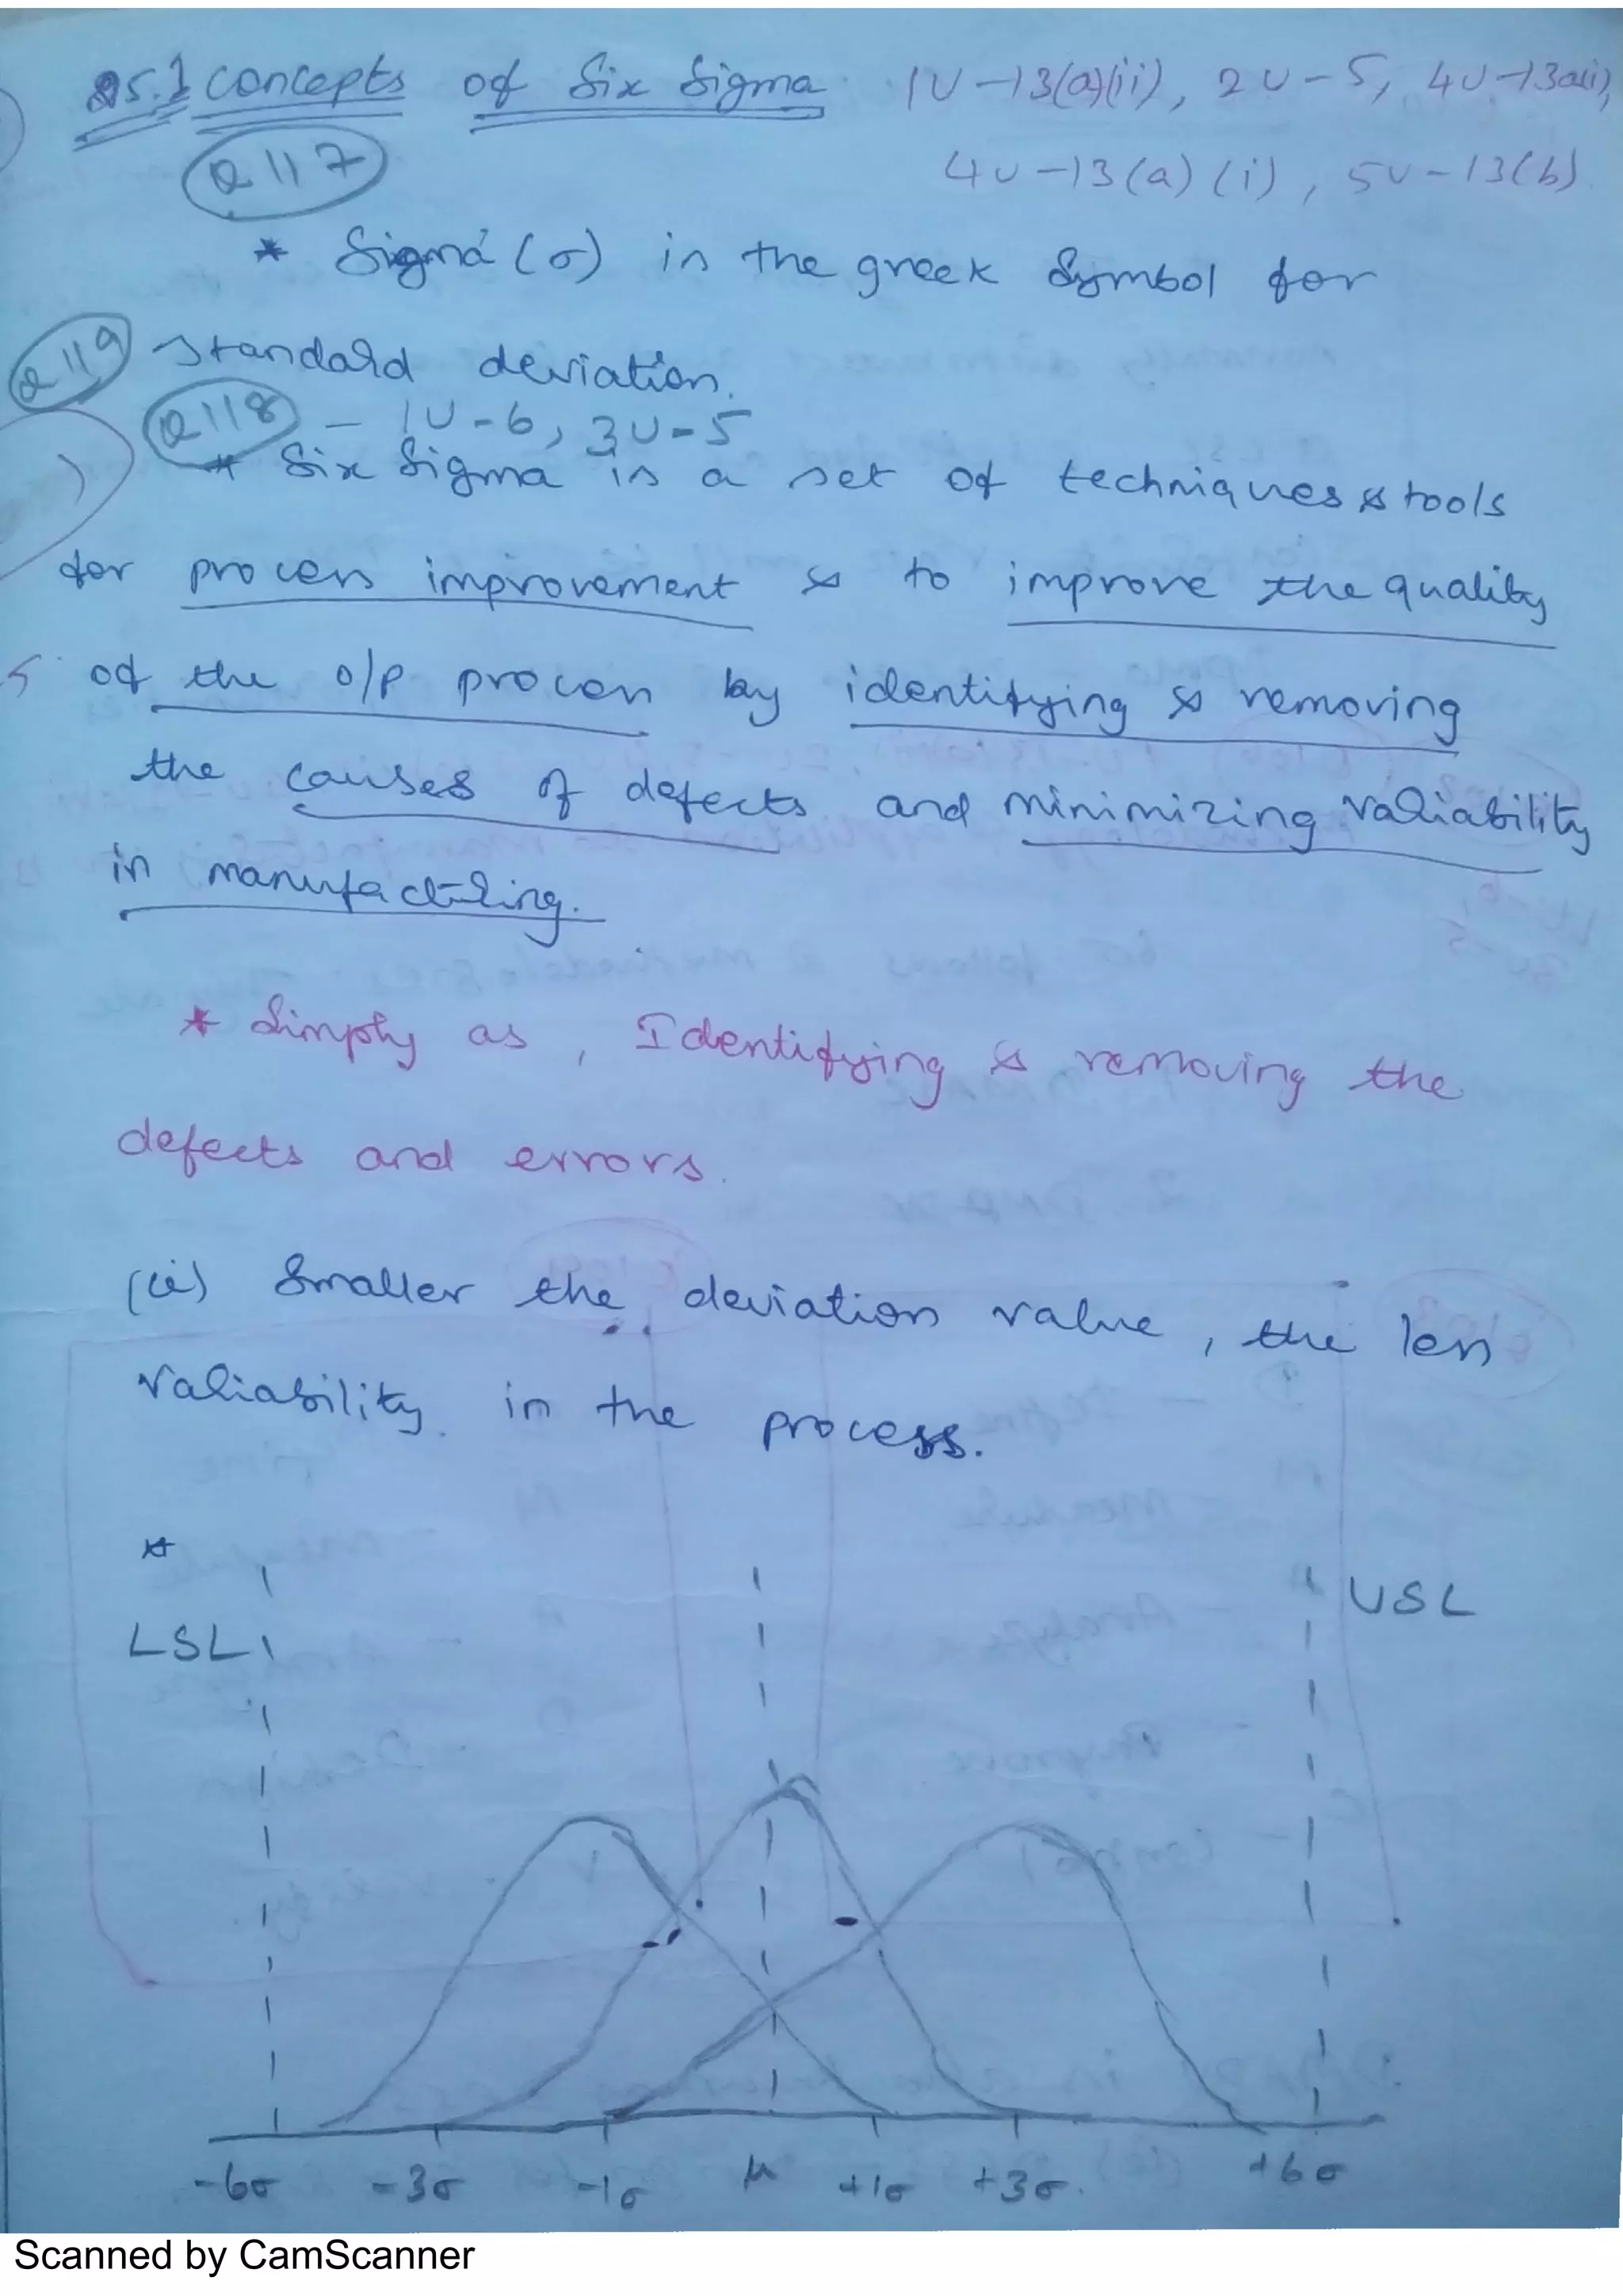 25.1 concepts of Six Sigma 1U-13(a)(ii), 2U-5, 4U-13a(i),
Q117 4U-13(a)(i), 5U-13(b)
* Sigma (σ) is the greek symbol for
Q119 standard deviation.
Q118 - 1U-6, 3U-5
* Six Sigma is a set of techniques & tools
for process improvement & to improve the quality
of the o/p process by identifying & removing
the causes of defects and minimizing variability
in manufacturing.
* Simply as, Identifying & removing the
defects and errors.
(ie) Smaller the deviation value, the less
variability in the process.
*
LSL USL
-6σ -3σ -1σ μ +1σ +3σ +6σ
Scanned by CamScanner